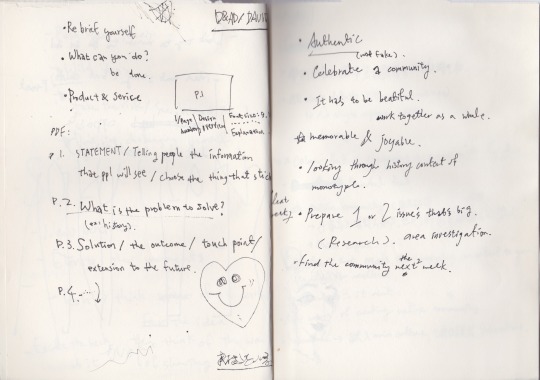 D&AD/ DAVID
• Re brief yourself
• What can you do?
be done.
• Product & service
P5
1/Page/ Design
Font size: 9.
Explanation
PDF:
P 1. STATEMENT / Telling people the information
That ppl will see / Choose the thing that stick
P. 2. What is the problem to solve?
(ex: history).
P. 3. Solution / the outcome / touch point /
extension to the future.
P. 4. ....
• Authentic
(not fake).
• Celebrate a community.
• It has to be beatiful.
work together as a whole.
memorable & joyable.
• looking through history content of
monotype.
• Prepare 1 or 2 issue's that's big.
(Research). area investigation.
• find the community the next week.